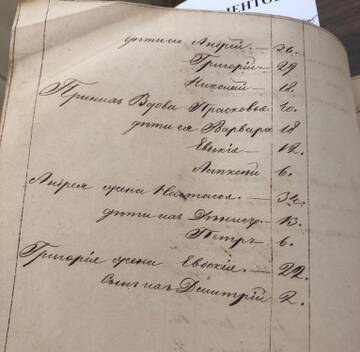 МЕНТОВ
дѣти ея Андрей — 36.
Григорій — 29
Николай — 18.
Вдова Прасковья 40.
дѣти ея Варвара 18
Евкія — 12.
6.
Андрея жена Настасья — 34.
дѣти ихъ Денисъ — 13.
Петръ — 6.
Григорія жена Евдокія — 22.
сынъ ихъ Дмитрій 2.